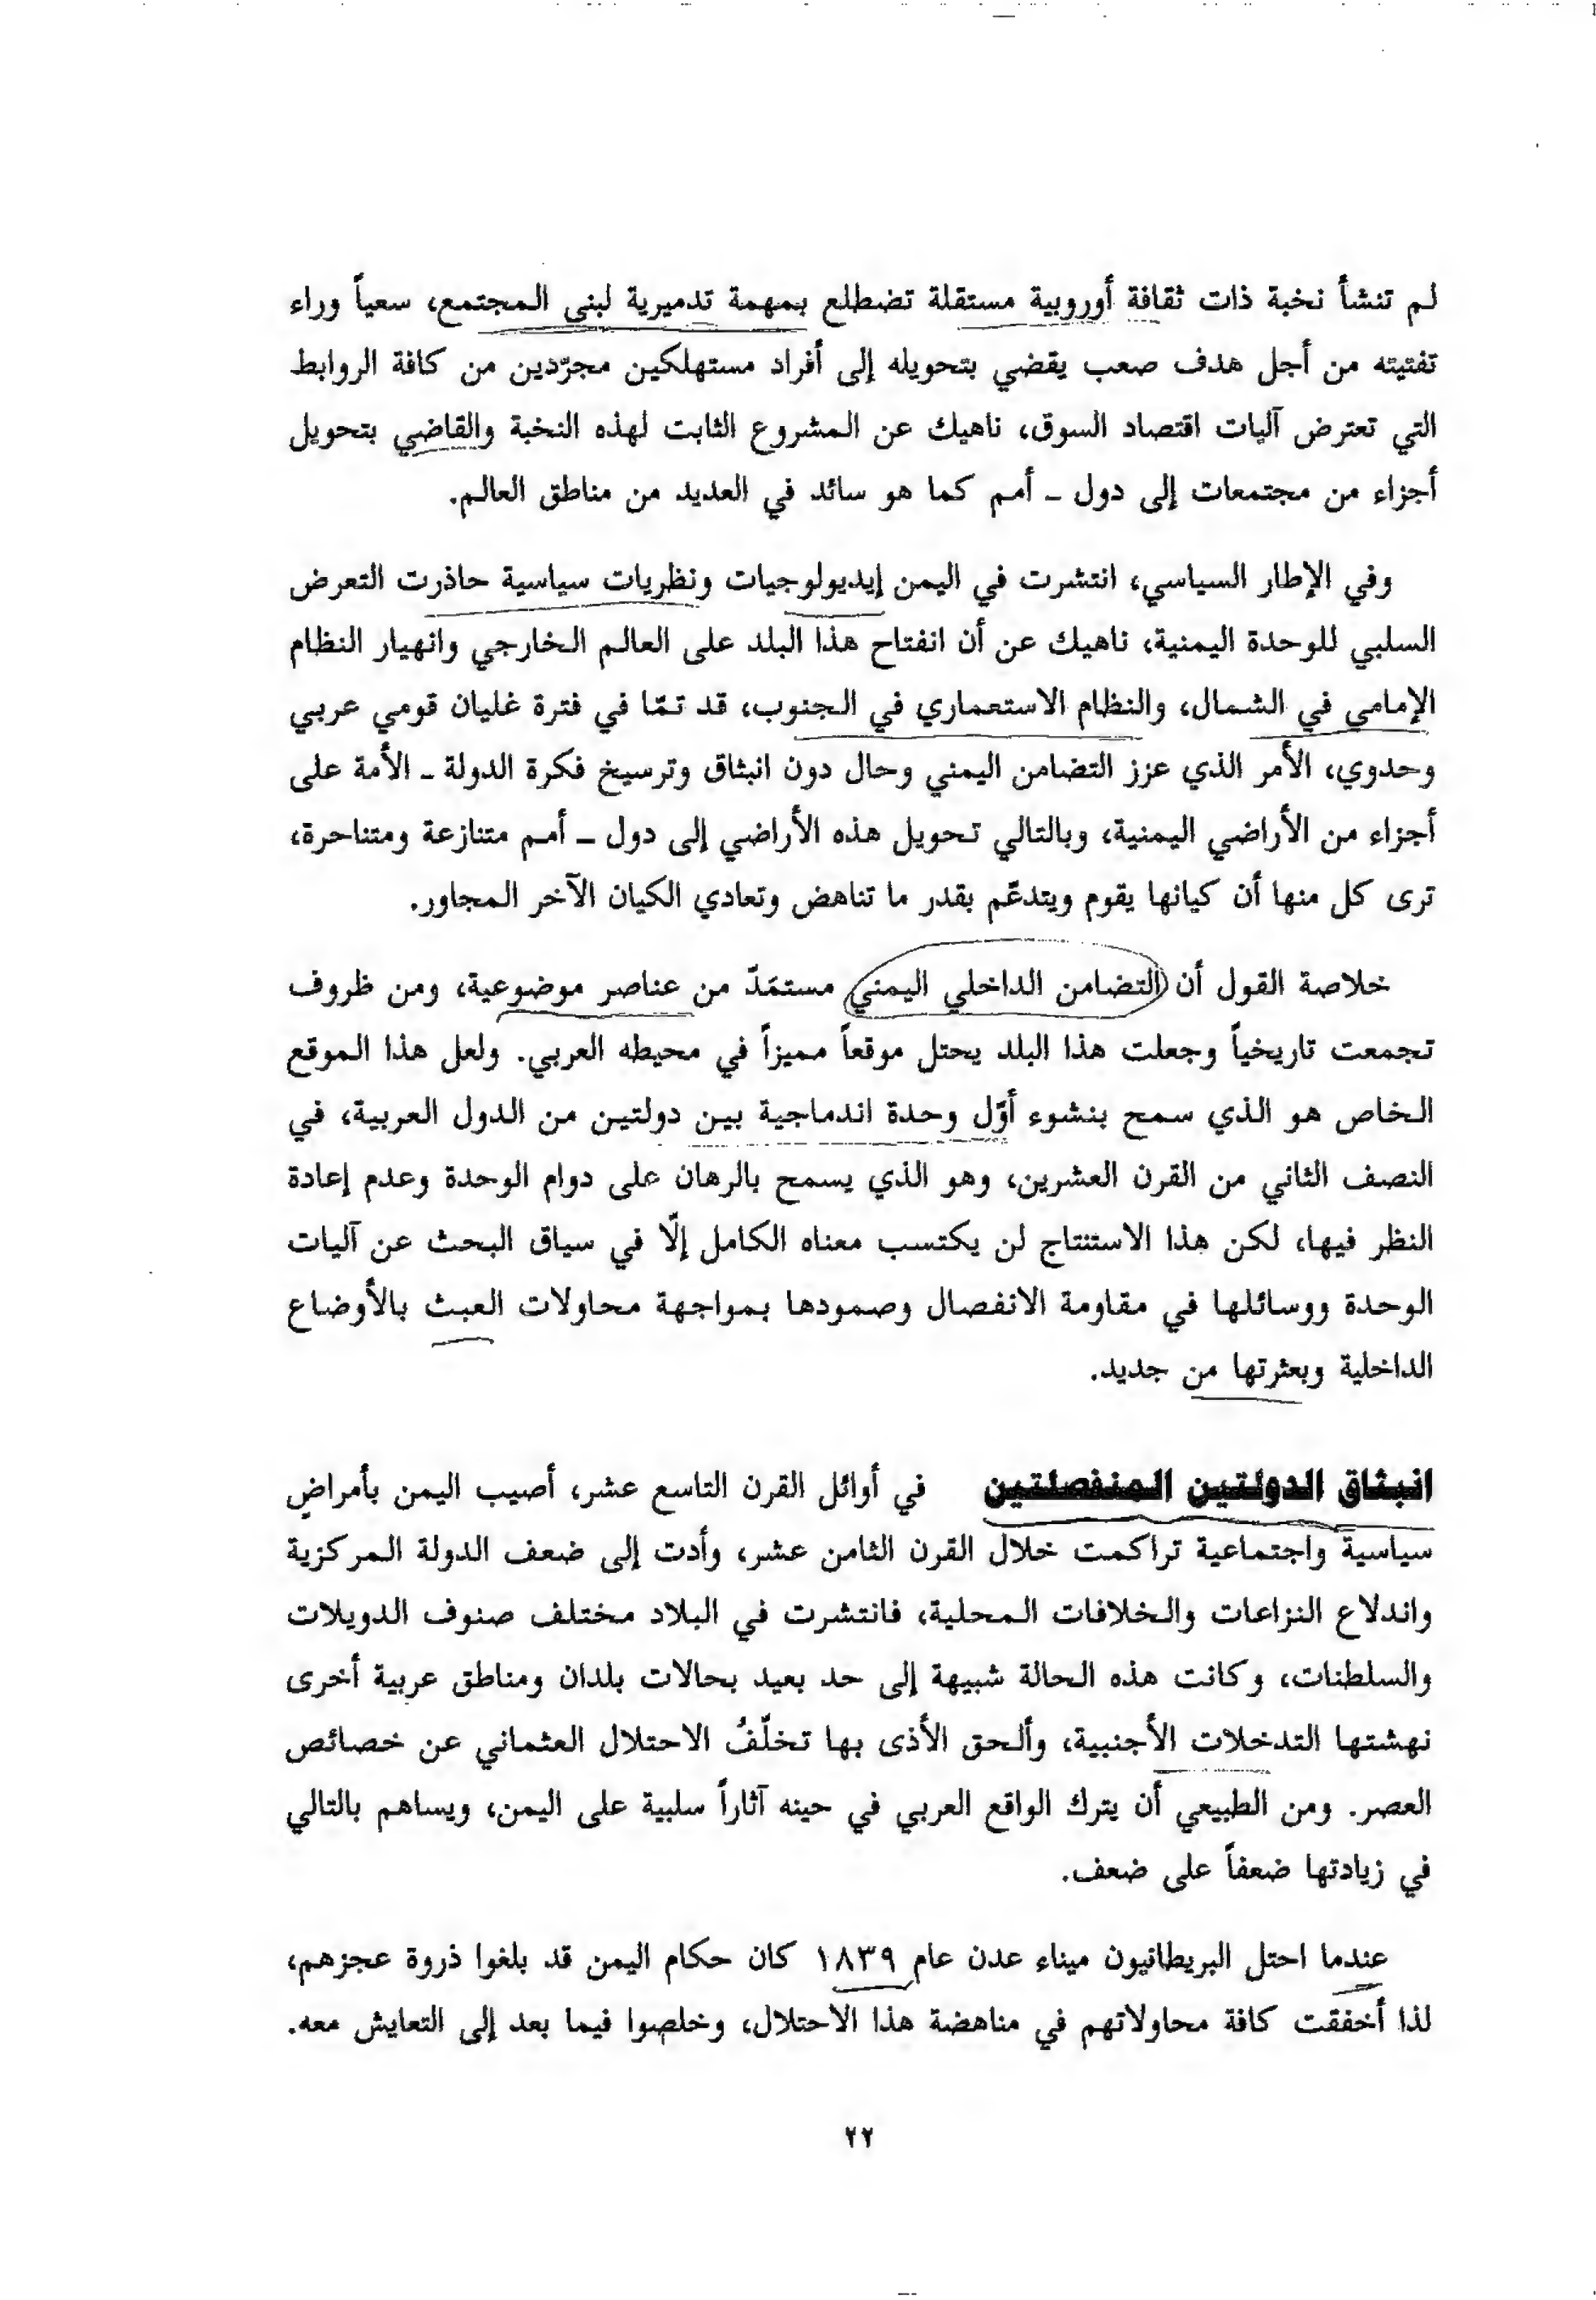 لم تنشأ نخبة ذات ثقافة أوروبية مستقلة تضطلع بمهمة تدميرية لبنى المجتمع، سعياً وراء
تفتيته من أجل هدف صعب يقضي بتحويله إلى أفراد مستهلكين مجرّدين من كافة الروابط
التي تعترض آليات اقتصاد السوق، ناهيك عن المشروع الثابت لهذه النخبة والقاضي بتحويل
أجزاء من مجتمعات إلى دول ـ أمم كما هو سائد في العديد من مناطق العالم.
وفي الإطار السياسي، انتشرت في اليمن إيديولوجيات ونظريات سياسية حاذرت التعرض
السلبي للوحدة اليمنية، ناهيك عن أن انفتاح هذا البلد على العالم الخارجي وانهيار النظام
الإمامي في الشمال، والنظام الاستعماري في الجنوب، قد تمّا في فترة غليان قومي عربي
وحدوي، الأمر الذي عزز التضامن اليمني وحال دون انبثاق وترسيخ فكرة الدولة ـ الأمة على
أجزاء من الأراضي اليمنية، وبالتالي تحويل هذه الأراضي إلى دول ـ أمم متنازعة ومتناحرة،
ترى كل منها أن كيانها يقوم ويتدعّم بقدر ما تناهض وتعادي الكيان الآخر المجاور.
خلاصة القول أن التضامن الداخلي اليمني مستمَدّ من عناصر موضوعية، ومن ظروف
تجمعت تاريخياً وجعلت هذا البلد يحتل موقعاً مميزاً في محيطه العربي. ولعل هذا الموقع
الخاص هو الذي سمح بنشوء أوّل وحدة اندماجية بين دولتين من الدول العربية، في
النصف الثاني من القرن العشرين، وهو الذي يسمح بالرهان على دوام الوحدة وعدم إعادة
النظر فيها، لكن هذا الاستنتاج لن يكتسب معناه الكامل إلّا في سياق البحث عن آليات
الوحدة ووسائلها في مقاومة الانفصال وصمودها بمواجهة محاولات العبث بالأوضاع
الداخلية وبعثرتها من جديد.
انبثاق الدولتين المنفصلتين في أوائل القرن التاسع عشر، أصيب اليمن بأمراضٍ
سياسية واجتماعية تراكمت خلال القرن الثامن عشر، وأدت إلى ضعف الدولة المركزية
واندلاع النزاعات والخلافات المحلية، فانتشرت في البلاد مختلف صنوف الدويلات
والسلطنات، وكانت هذه الحالة شبيهة إلى حد بعيد بحالات بلدان ومناطق عربية أخرى
نهشتها التدخلات الأجنبية، وألحق الأذى بها تخلّفُ الاحتلال العثماني عن خصائص
العصر. ومن الطبيعي أن يترك الواقع العربي في حينه آثاراً سلبية على اليمن، ويساهم بالتالي
في زيادتها ضعفاً على ضعف.
عندما احتل البريطانيون ميناء عدن عام ١٨٣٩ كان حكام اليمن قد بلغوا ذروة عجزهم،
لذا أخفقت كافة محاولاتهم في مناهضة هذا الاحتلال، وخلصوا فيما بعد إلى التعايش معه.
٢٢